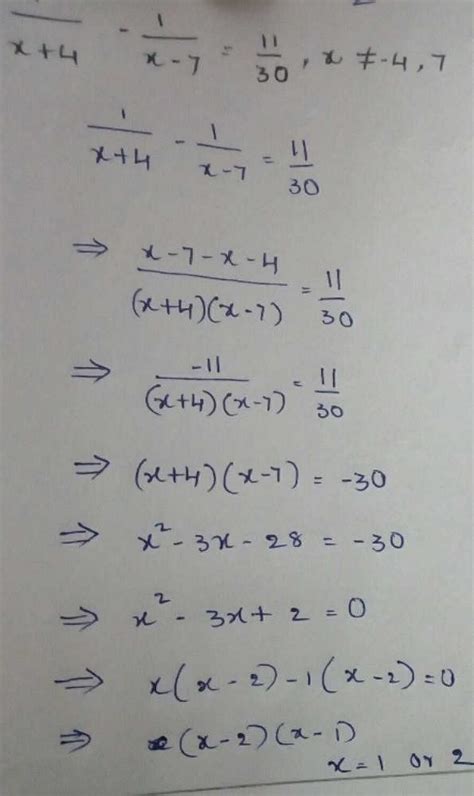 1/(x+4) - 1/(x-7) = 11/30, x ≠ -4, 7
1/(x+4) - 1/(x-7) = 11/30
⇒ (x-7-x-4)/((x+4)(x-7)) = 11/30
⇒ -11/((x+4)(x-7)) = 11/30
⇒ (x+4)(x-7) = -30
⇒ x² - 3x - 28 = -30
⇒ x² - 3x + 2 = 0
⇒ x(x-2)-1(x-2)=0
⇒ (x-2)(x-1)
x=1 or 2